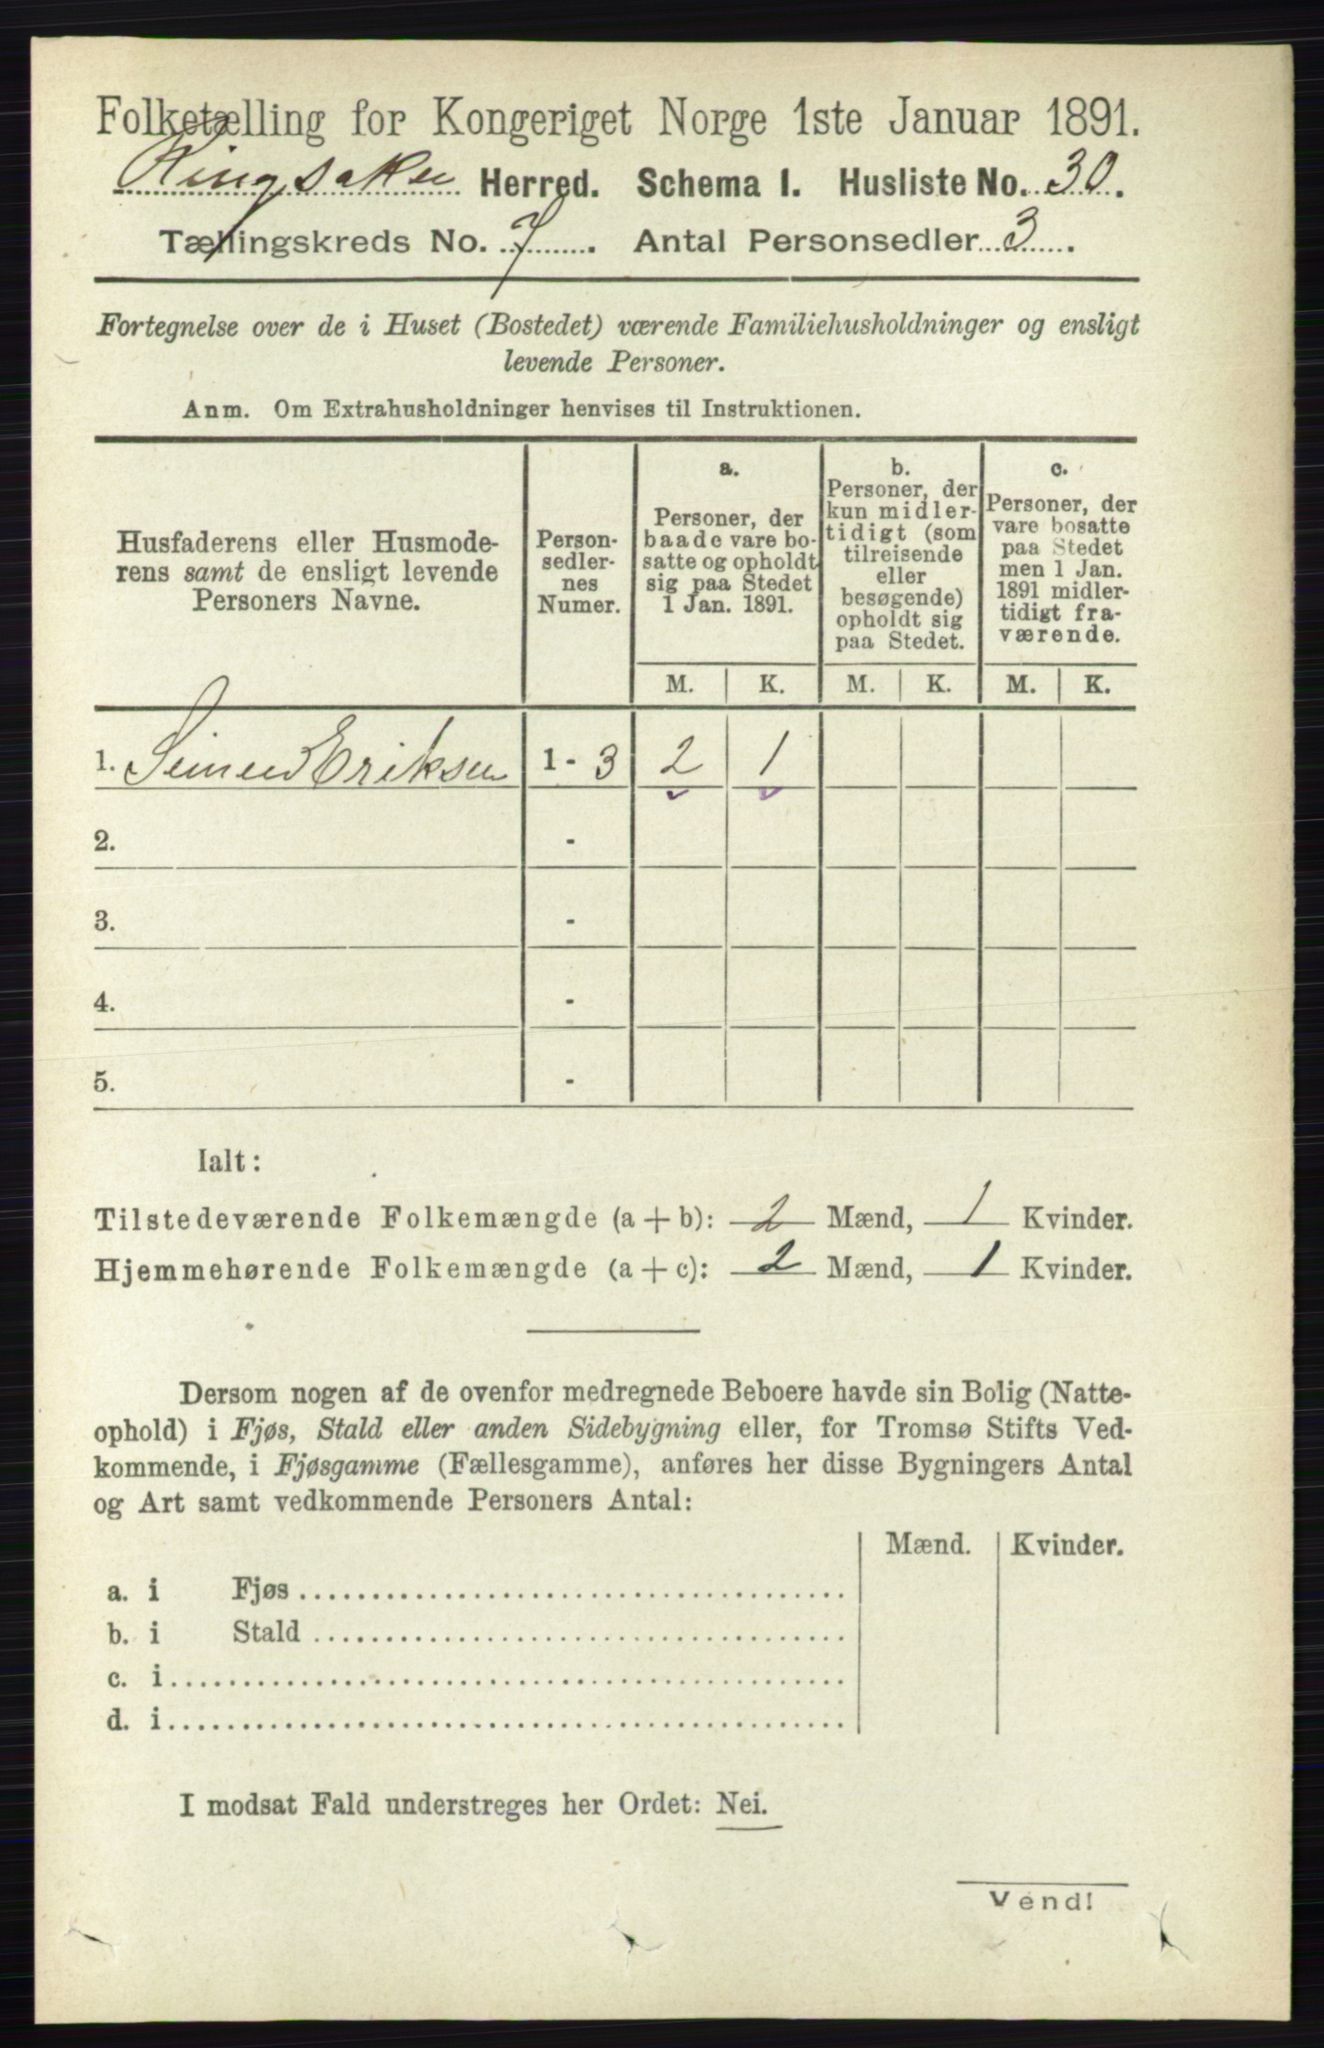 Folketælling for Kongeriget Norge 1ste Januar 1891.
Ringsaker Herred. Schema I. Husliste No. 30.
Tællingskreds No. 7. Antal Personsedler 3.
Fortegnelse over de i Huset (Bostedet) værende Familiehusholdninger og ensligt
levende Personer.
Anm. Om Extrahusholdninger henvises til Instruktionen.
Husfaderens eller Husmode-
rens samt de ensligt levende
Personers Navne.
Person-
sedler-
nes
Numer.
a.
Personer, der
baade vare bo-
satte og opholdt
sig paa Stedet
1 Jan. 1891.
b.
Personer, der
kun midler-
tidigt (som
tilreisende
eller
besøgende)
opholdt sig
paa Stedet.
c.
Personer, der
vare bosatte
paa Stedet
men 1 Jan.
1891 midler-
tidigt fra-
værende.
M. K. M. K. M. K.
1. Simen Eriksen 1 - 3 2 1
2. -
3. -
4. -
5. -
Ialt:
Tilstedeværende Folkemængde (a + b): 2 Mænd, 1 Kvinder.
Hjemmehørende Folkemængde (a + c): 2 Mænd, 1 Kvinder.
Dersom nogen af de ovenfor medregnede Beboere havde sin Bolig (Natte-
ophold) i Fjøs, Stald eller anden Sidebygning eller, for Tromsø Stifts Ved-
kommende, i Fjøsgamme (Fællesgamme), anføres her disse Bygningers Antal
og Art samt vedkommende Personers Antal:
Mænd. Kvinder.
a. i Fjøs
b. i Stald
c. i
d. i
I modsat Fald understreges her Ordet: Nei.
Vend!